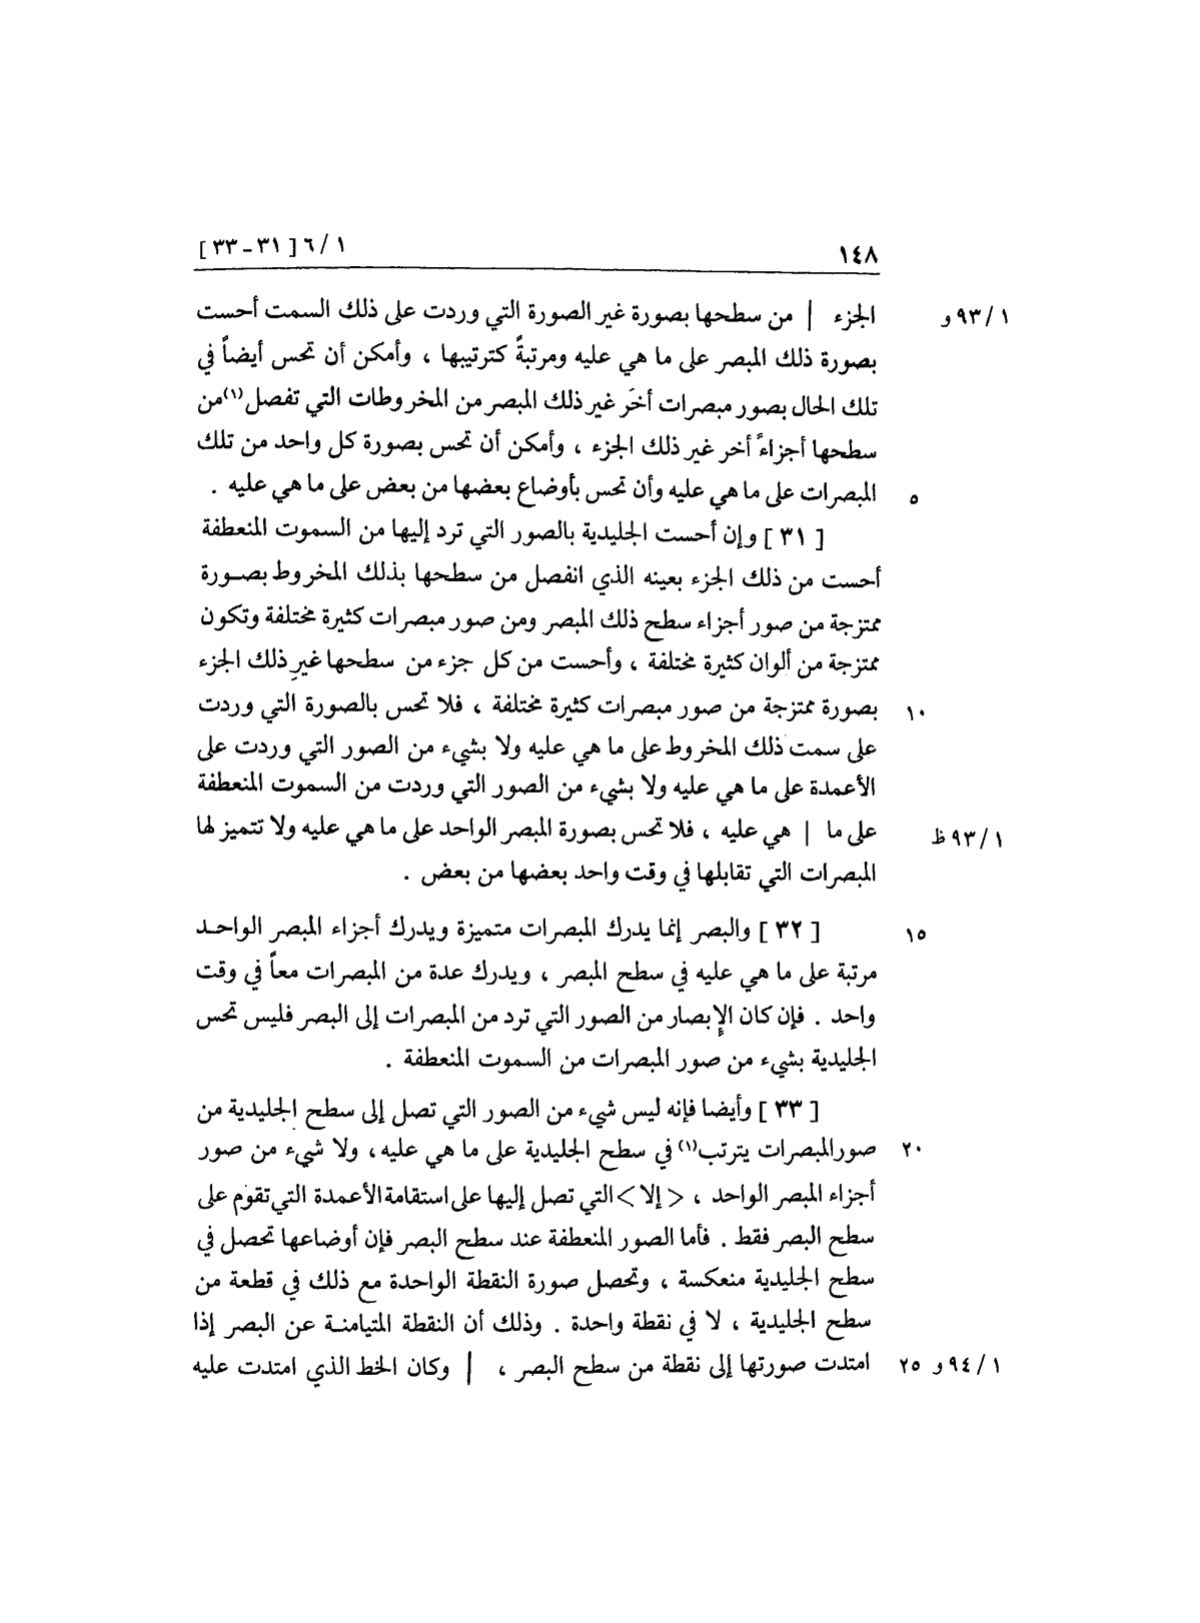 ١٤٨ ١ / ٦ [ ٣١ - ٣٣ ]
١ / ٩٣ و الجزء | من سطحها بصورة غير الصورة التي وردت على ذلك السمت أحست
بصورة ذلك المبصر على ما هي عليه ومرتبةً كترتيبها ، وأمكن أن تحس أيضاً في
تلك الحال بصور مبصرات أخَر غير ذلك المبصر من المخروطات التي تفصل(١) من
سطحها أجزاءً أخر غير ذلك الجزء ، وأمكن أن تحس بصورة كل واحد من تلك
٥ المبصرات على ما هي عليه وأن تحس بأوضاع بعضها من بعض على ما هي عليه .
[ ٣١ ] وإن أحست الجليدية بالصور التي ترد إليها من السموت المنعطفة
أحست من ذلك الجزء بعينه الذي انفصل من سطحها بذلك المخروط بصـورة
ممتزجة من صور أجزاء سطح ذلك المبصر ومن صور مبصرات كثيرة مختلفة وتكون
ممتزجة من ألوان كثيرة مختلفة ، وأحست من كل جزء من سطحها غيرِ ذلك الجزء
١٠ بصورة ممتزجة من صور مبصرات كثيرة مختلفة ، فلا تحس بالصورة التي وردت
على سمت ذلك المخروط على ما هي عليه ولا بشيء من الصور التي وردت على
الأعمدة على ما هي عليه ولا بشيء من الصور التي وردت من السموت المنعطفة
١ / ٩٣ ظ على ما | هي عليه ، فلا تحس بصورة المبصر الواحد على ما هي عليه ولا تتميز لها
المبصرات التي تقابلها في وقت واحد بعضها من بعض .
١٥ [ ٣٢ ] والبصر إنما يدرك المبصرات متميزة ويدرك أجزاء المبصر الواحـد
مرتبة على ما هي عليه في سطح المبصر ، ويدرك عدة من المبصرات معاً في وقت
واحد . فإن كان الإِبصار من الصور التي ترد من المبصرات إلى البصر فليس تحس
الجليدية بشيء من صور المبصرات من السموت المنعطفة .
[ ٣٣ ] وأيضا فإنه ليس شيء من الصور التي تصل إلى سطح الجليدية من
٢٠ صور المبصرات يترتب(١) في سطح الجليدية على ما هي عليه، ولا شيء من صور
أجزاء المبصر الواحد ، < إلا > التي تصل إليها على استقامة الأعمدة التي تقوم على
سطح البصر فقط . فأما الصور المنعطفة عند سطح البصر فإن أوضاعها تحصل في
سطح الجليدية منعكسة ، وتحصل صورة النقطة الواحدة مع ذلك في قطعة من
سطح الجليدية ، لا في نقطة واحدة . وذلك أن النقطة المتيامنـة عن البصر إذا
١ / ٩٤ و ٢٥ امتدت صورتها إلى نقطة من سطح البصر ، | وكان الخط الذي امتدت عليه